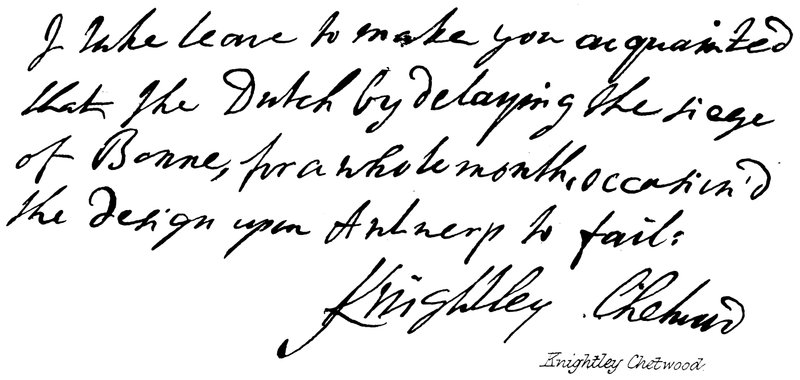 I take leave to make you acquainted
that the Dutch by delaying the siege
of Bonne, for a whole month, occasion'd
the design upon Antwerp to fail:
Knightley Chetwood
Knightley Chetwood.